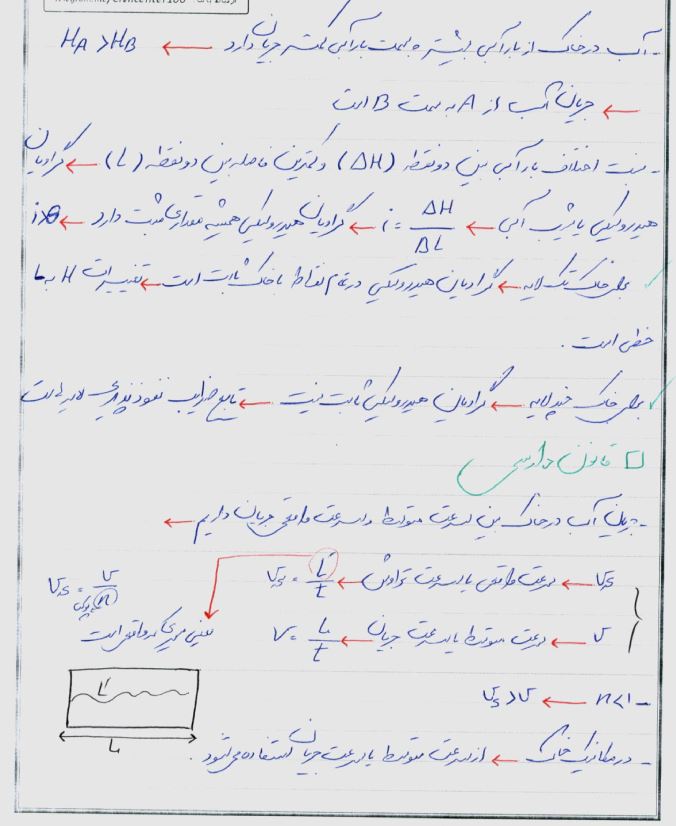 - آب در خاک از بار آبی بیشتر به سمت بار آبی کمتر جریان دارد ← HA > HB
← جریان آب از A به سمت B است
- نسبت اختلاف بار آبی بین دو نقطه (ΔH) و کمترین فاصله بین دو نقطه (L) ← گرادیان
هیدرولیکی یا شیب آبی ← i = ΔH / ΔL ← گرادیان هیدرولیکی همیشه مقداری مثبت دارد ← i>0
✓ برای خاک تک لایه ← گرادیان هیدرولیکی در تمام نقاط با خاک ثابت است ← تغییرات H به ما
خطی است.
✓ برای خاک چند لایه ← گرادیان هیدرولیکی ثابت نیست ← تابع ضرایب نفوذپذیری لایه هاست
□ قانون دارسی
- جریان آب در خاک بین سرعت متوسط و سرعت واقعی جریان داریم ←
Vs ← سرعت واقعی یا سرعت تراوش ← Vs = L' / t
Vs = V / n پوکی
V ← سرعت متوسط یا سرعت جریان ← V = L / t
یعنی مسیری که واقعی است
- n<1 ← Vs > V
L'
L
- در مکانیک خاک ← از سرعت متوسط یا سرعت جریان استفاده می‌شود.